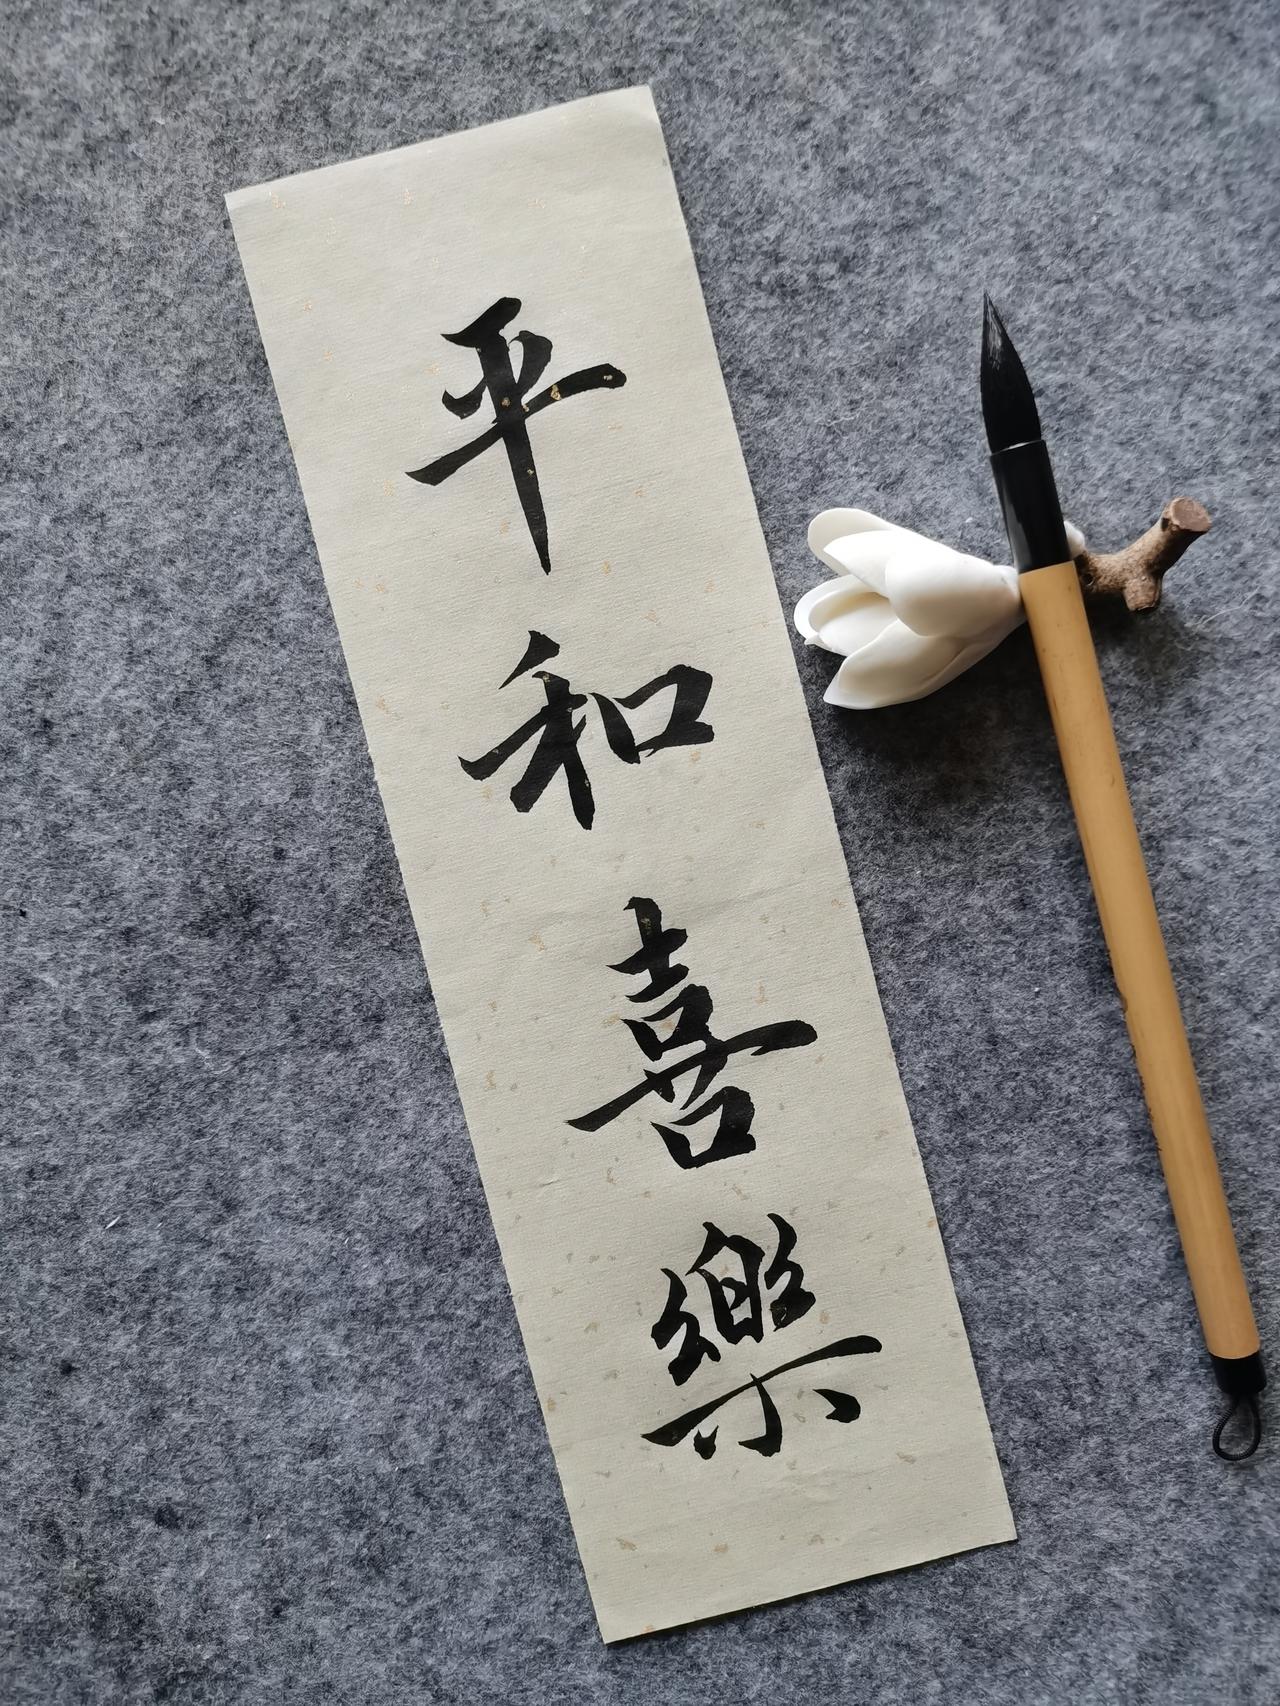 平和喜樂